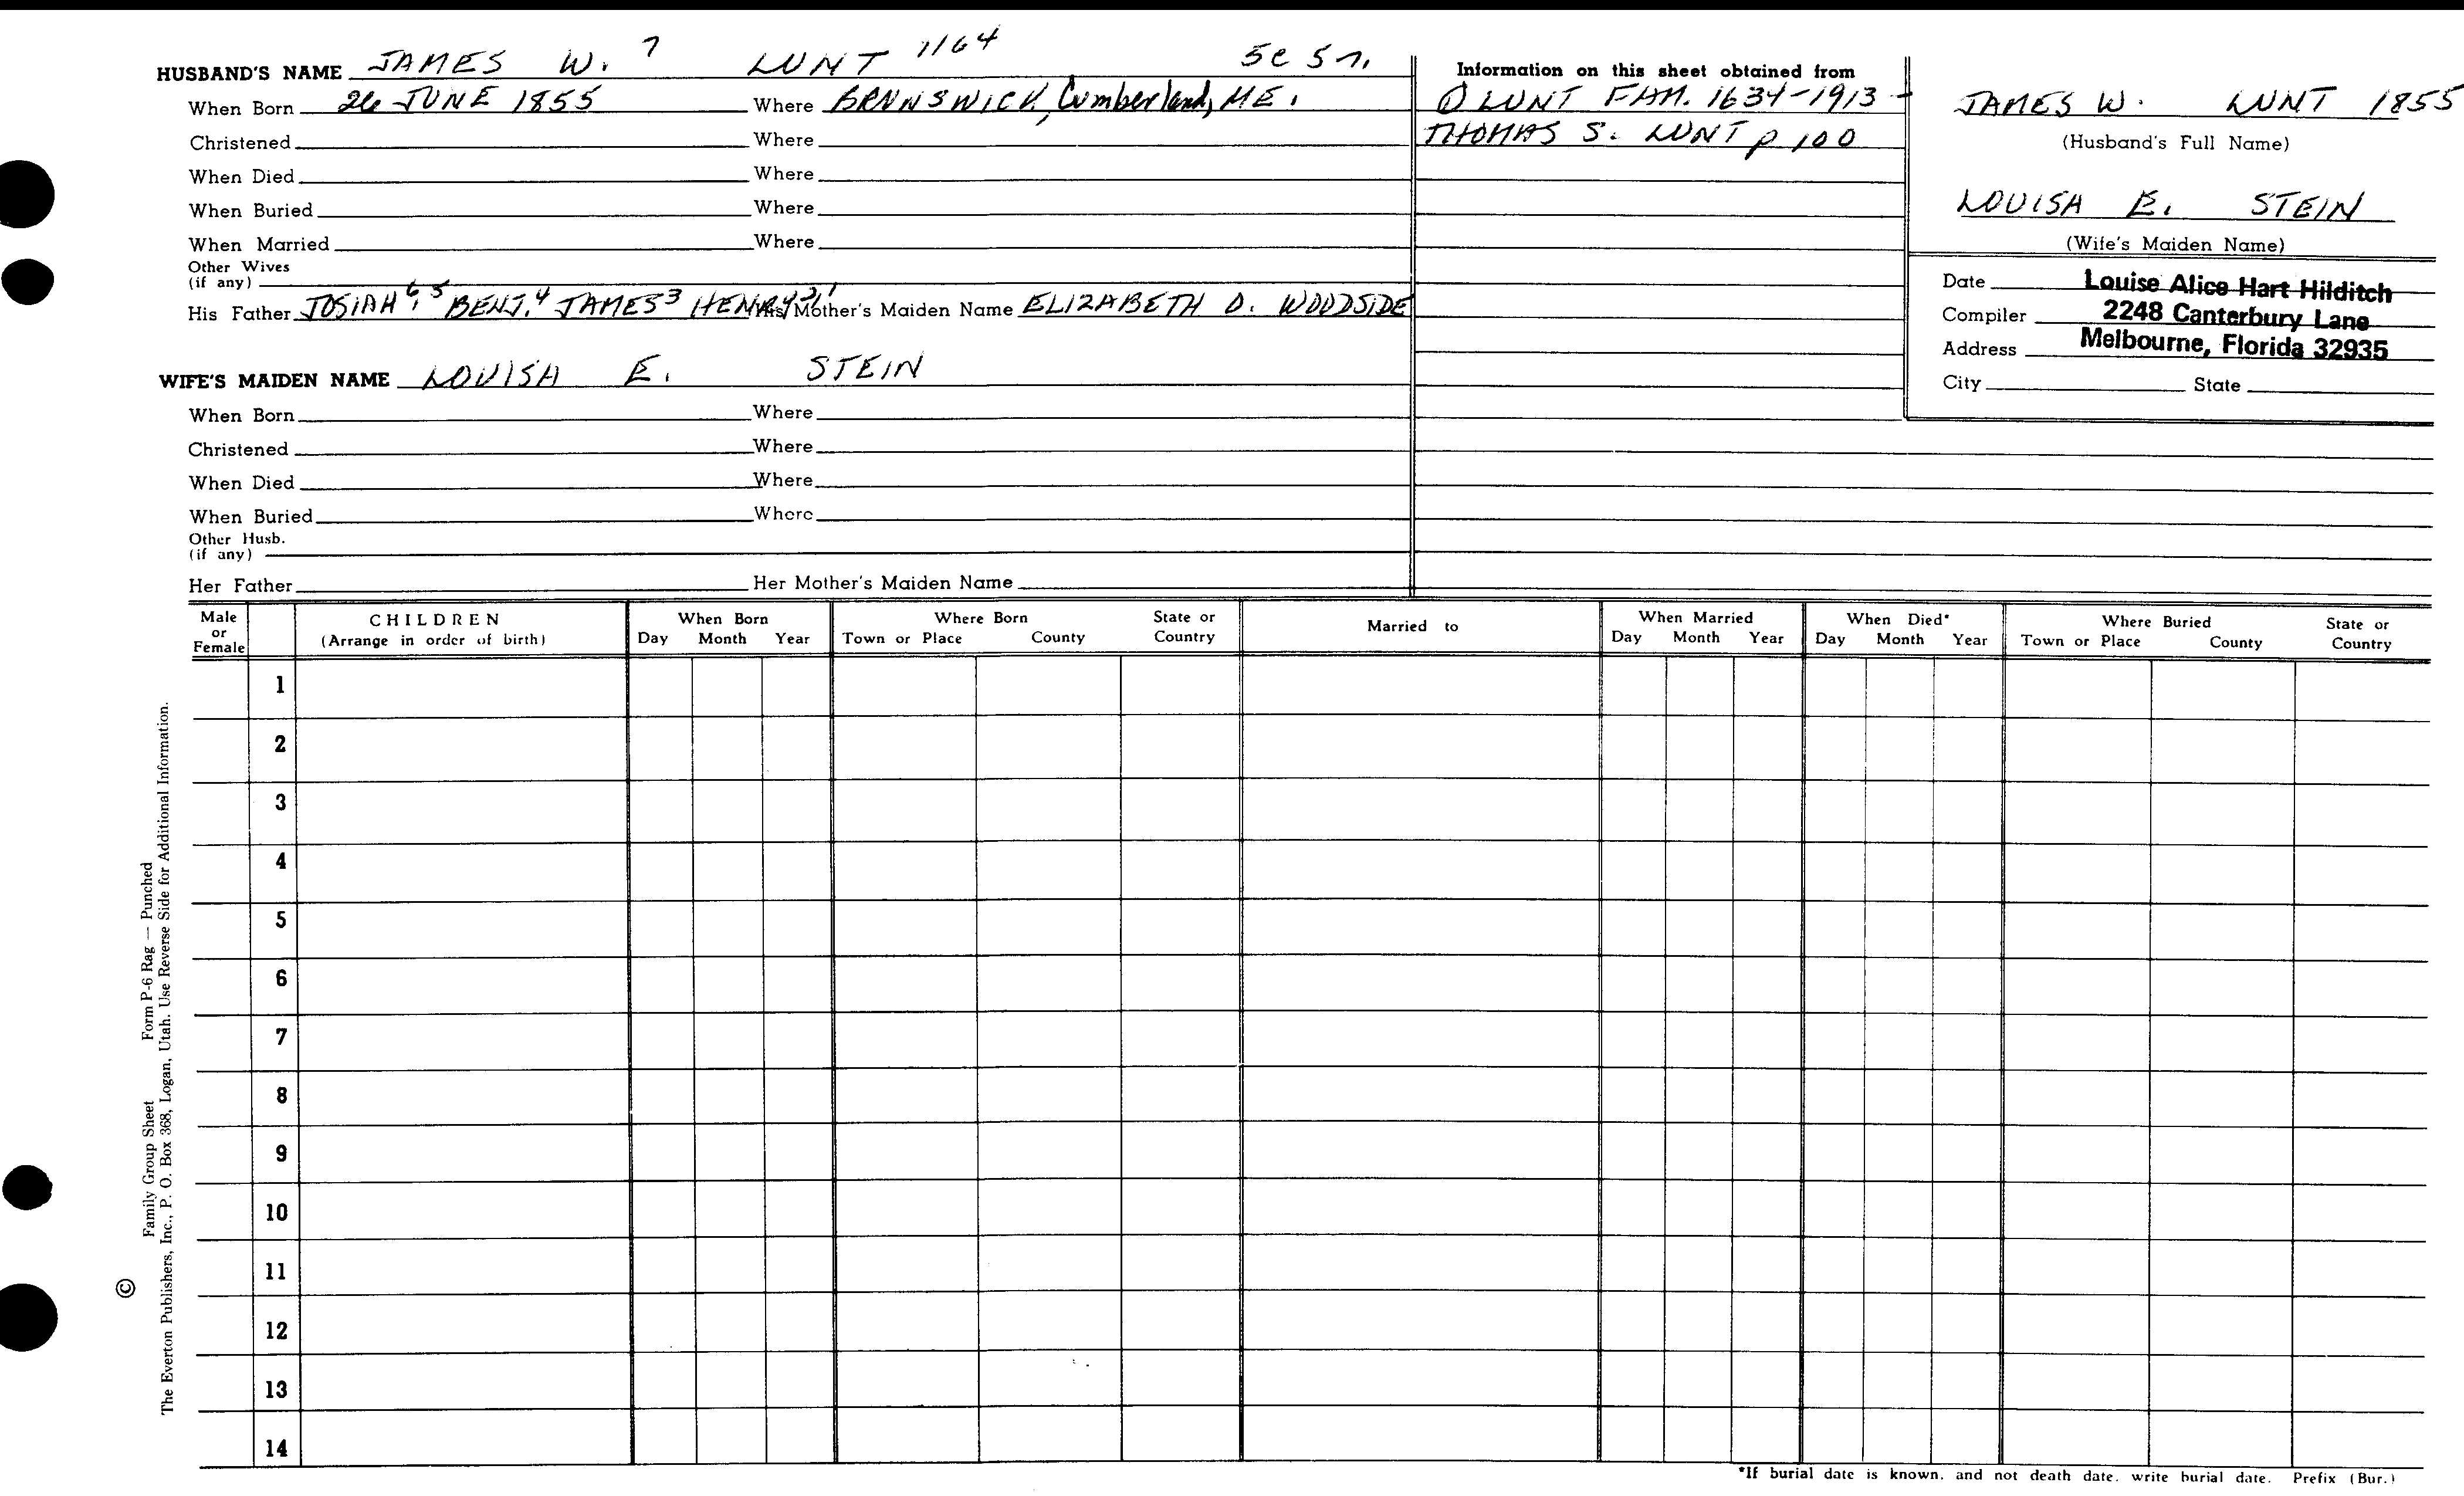 HUSBAND'S NAME JAMES W. 7 LUNT 1164 5C 57.
When Born 26 JUNE 1855 Where BRUNSWICK, Cumberland, ME.
Christened Where
When Died Where
When Buried Where
When Married Where
Other Wives
(if any)
His Father JOSIAH 6, 5 BENJ. 4 JAMES 3 HENRY 2, 1 His Mother's Maiden Name ELIZABETH D. WOODSIDE
WIFE'S MAIDEN NAME LOUISA E. STEIN
When Born Where
Christened Where
When Died Where
When Buried Where
Other Husb.
(if any)
Her Father Her Mother's Maiden Name
Information on this sheet obtained from
① LUNT FAM. 1634-1913 -
THOMAS S. LUNT p 100
JAMES W. LUNT 1855
(Husband's Full Name)
LOUISA E. STEIN
(Wife's Maiden Name)
Date Louise Alice Hart Hilditch
Compiler 2248 Canterbury Lane
Address Melbourne, Florida 32935
City State
Male or Female CHILDREN (Arrange in order of birth) When Born Day Month Year Where Born Town or Place County State or Country Married to When Married Day Month Year When Died* Day Month Year Where Buried Town or Place County State or Country
1
2
3
4
5
6
7
8
9
10
11
12
13
14
*If burial date is known, and not death date, write burial date. Prefix (Bur.)
Family Group Sheet Form P-6 Rag — Punched
© The Everton Publishers, Inc., P. O. Box 368, Logan, Utah. Use Reverse Side for Additional Information.